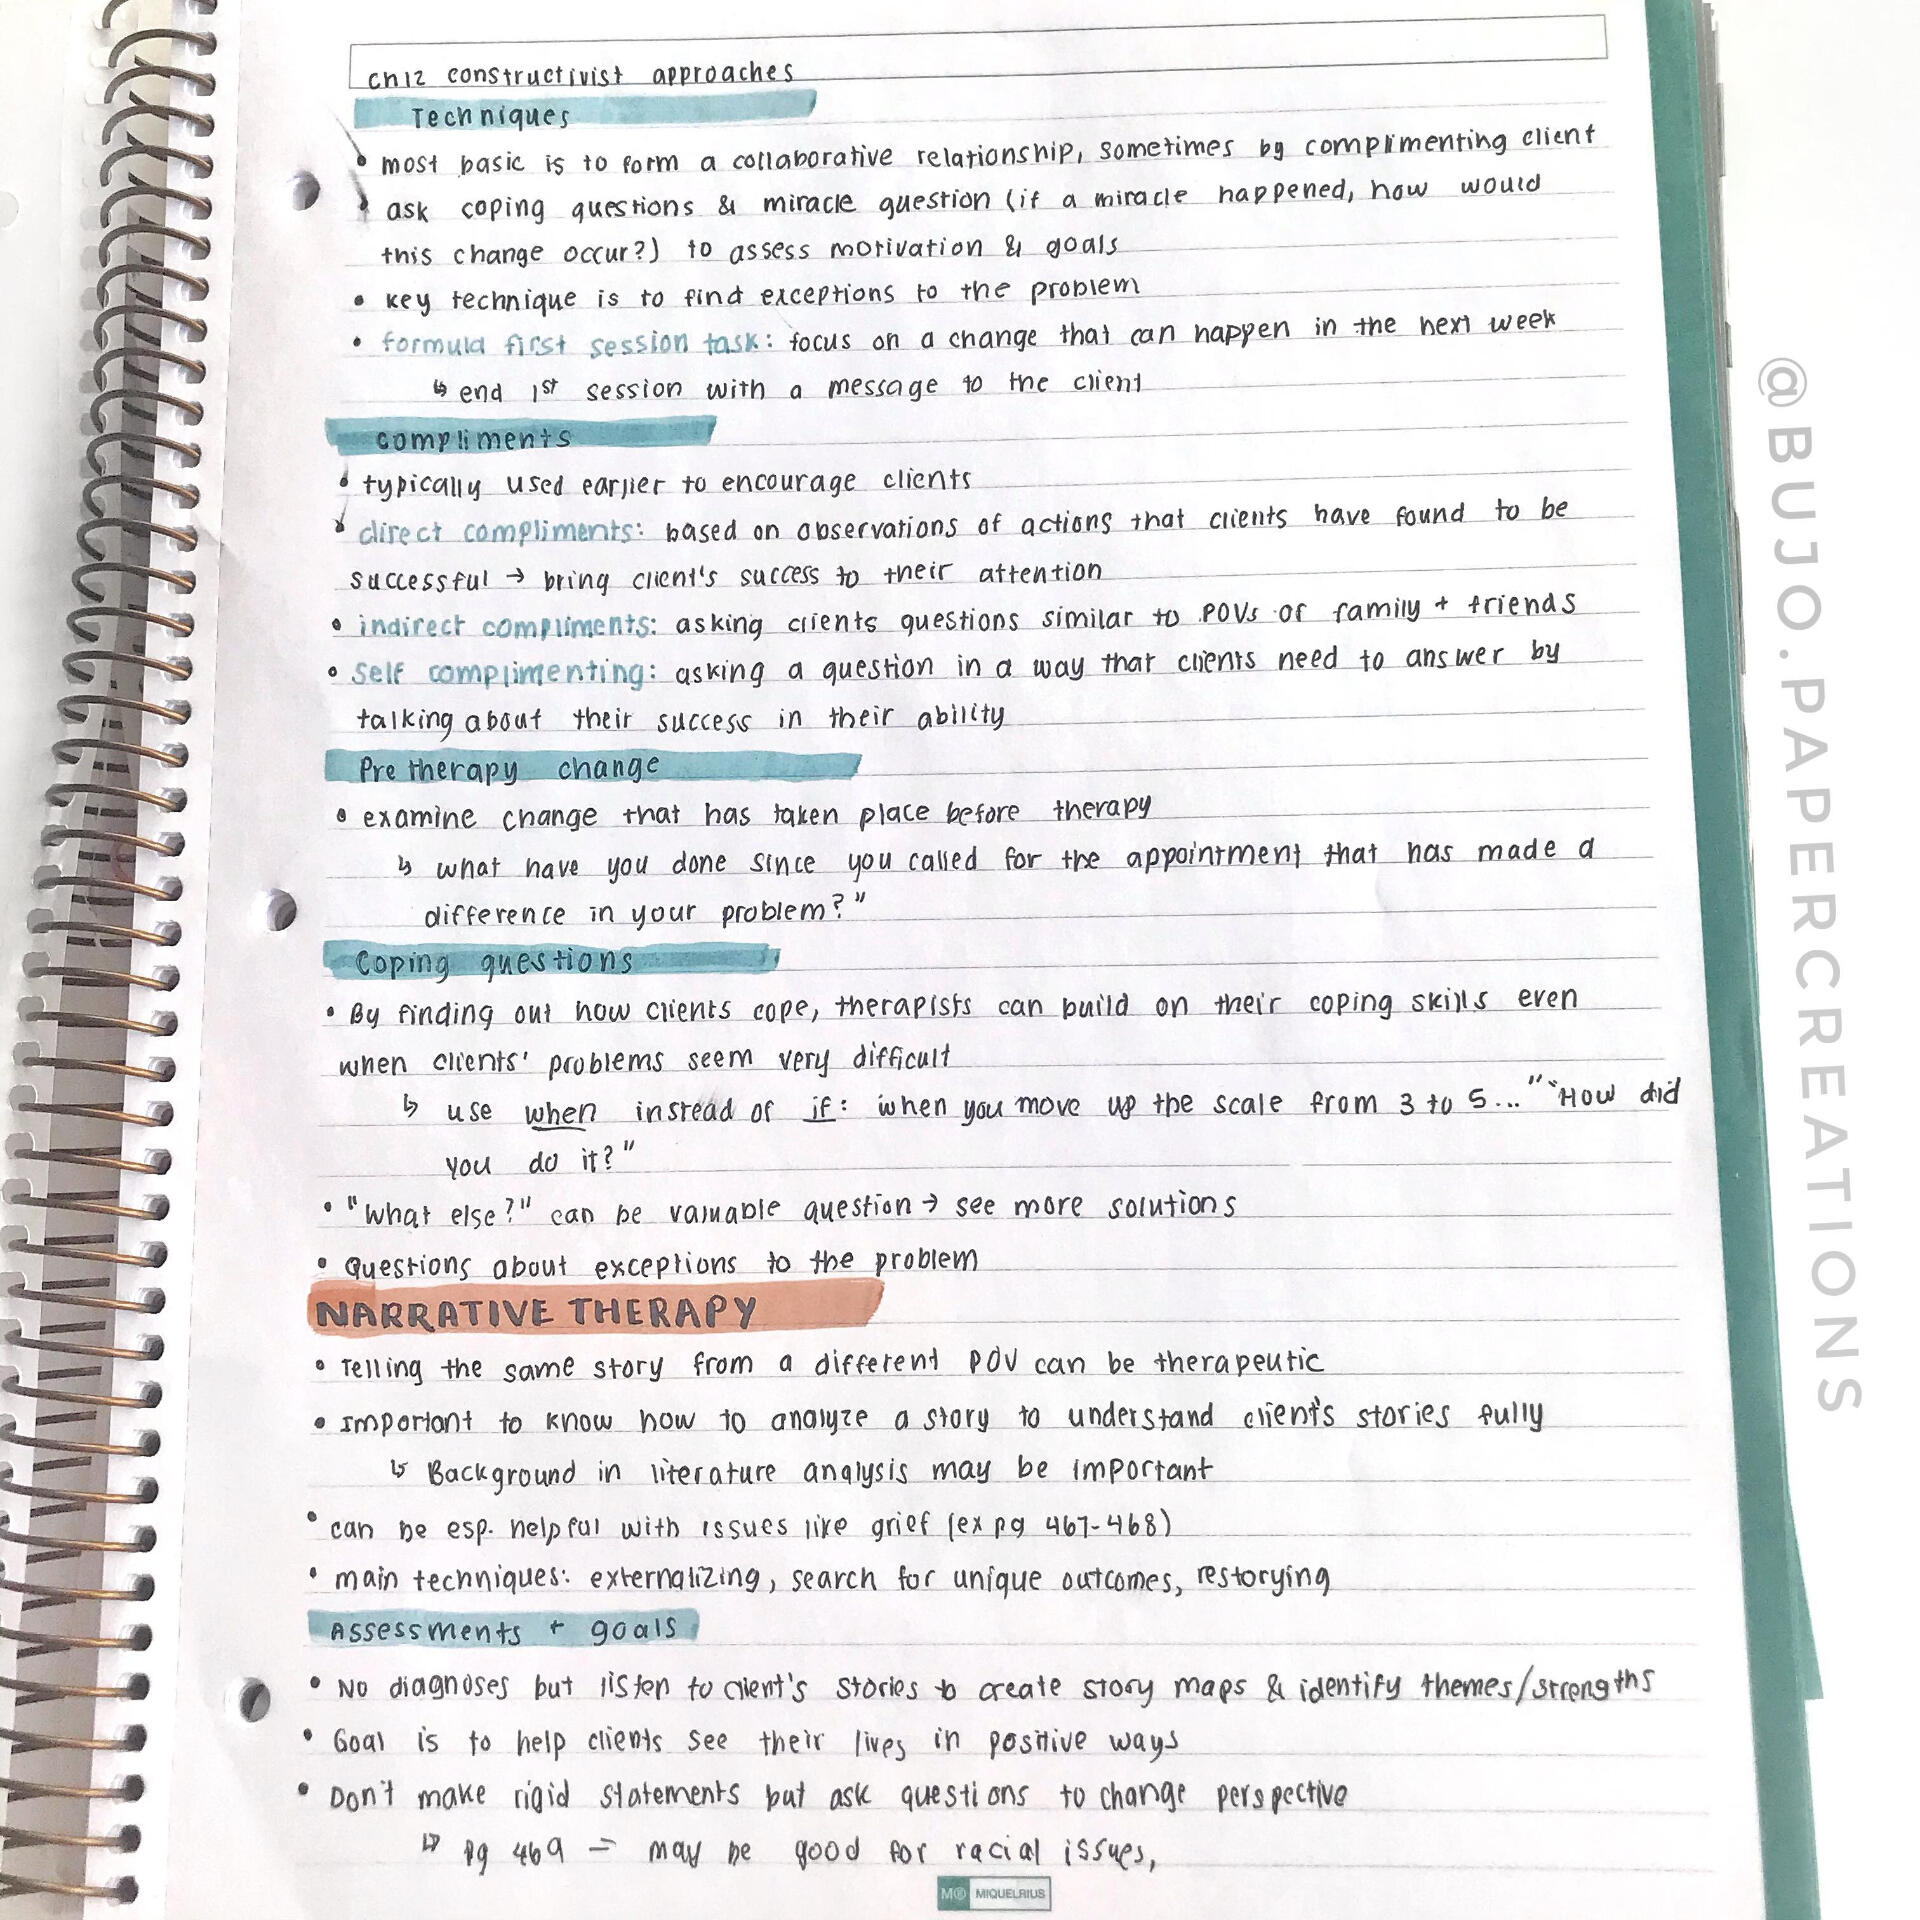 Ch12 constructivist approaches
Techniques
• most basic is to form a collaborative relationship, sometimes by complimenting client
• ask coping questions & miracle question (if a miracle happened, how would
this change occur?) to assess motivation & goals
• key technique is to find exceptions to the problem
• formula first session task: focus on a change that can happen in the next week
↳ end 1st session with a message to the client
compliments
• typically used earlier to encourage clients
• direct compliments: based on observations of actions that clients have found to be
successful → bring client's success to their attention
• indirect compliments: asking clients questions similar to POVs of family + friends
• Self complimenting: asking a question in a way that clients need to answer by
talking about their success in their ability
Pre therapy change
• examine change that has taken place before therapy
↳ what have you done since you called for the appointment that has made a
difference in your problem?"
Coping questions
• By finding out how clients cope, therapists can build on their coping skills even
when clients' problems seem very difficult
↳ use when instead of if: when you move up the scale from 3 to 5..." "How did
you do it?"
• "What else?" can be valuable question → see more solutions
• Questions about exceptions to the problem
NARRATIVE THERAPY
• Telling the same story from a different POV can be therapeutic
• Important to know how to analyze a story to understand client's stories fully
↳ Background in literature analysis may be important
• can be esp. helpful with issues like grief (ex pg 467-468)
• main techniques: externalizing, search for unique outcomes, restorying
Assessments + goals
• No diagnoses but listen to client's stories to create story maps & identify themes/strengths
• Goal is to help clients see their lives in positive ways
• Don't make rigid statements but ask questions to change perspective
↳ pg 469 = may be good for racial issues,
M® MIQUELRIUS
@BUJO.PAPERCREATIONS